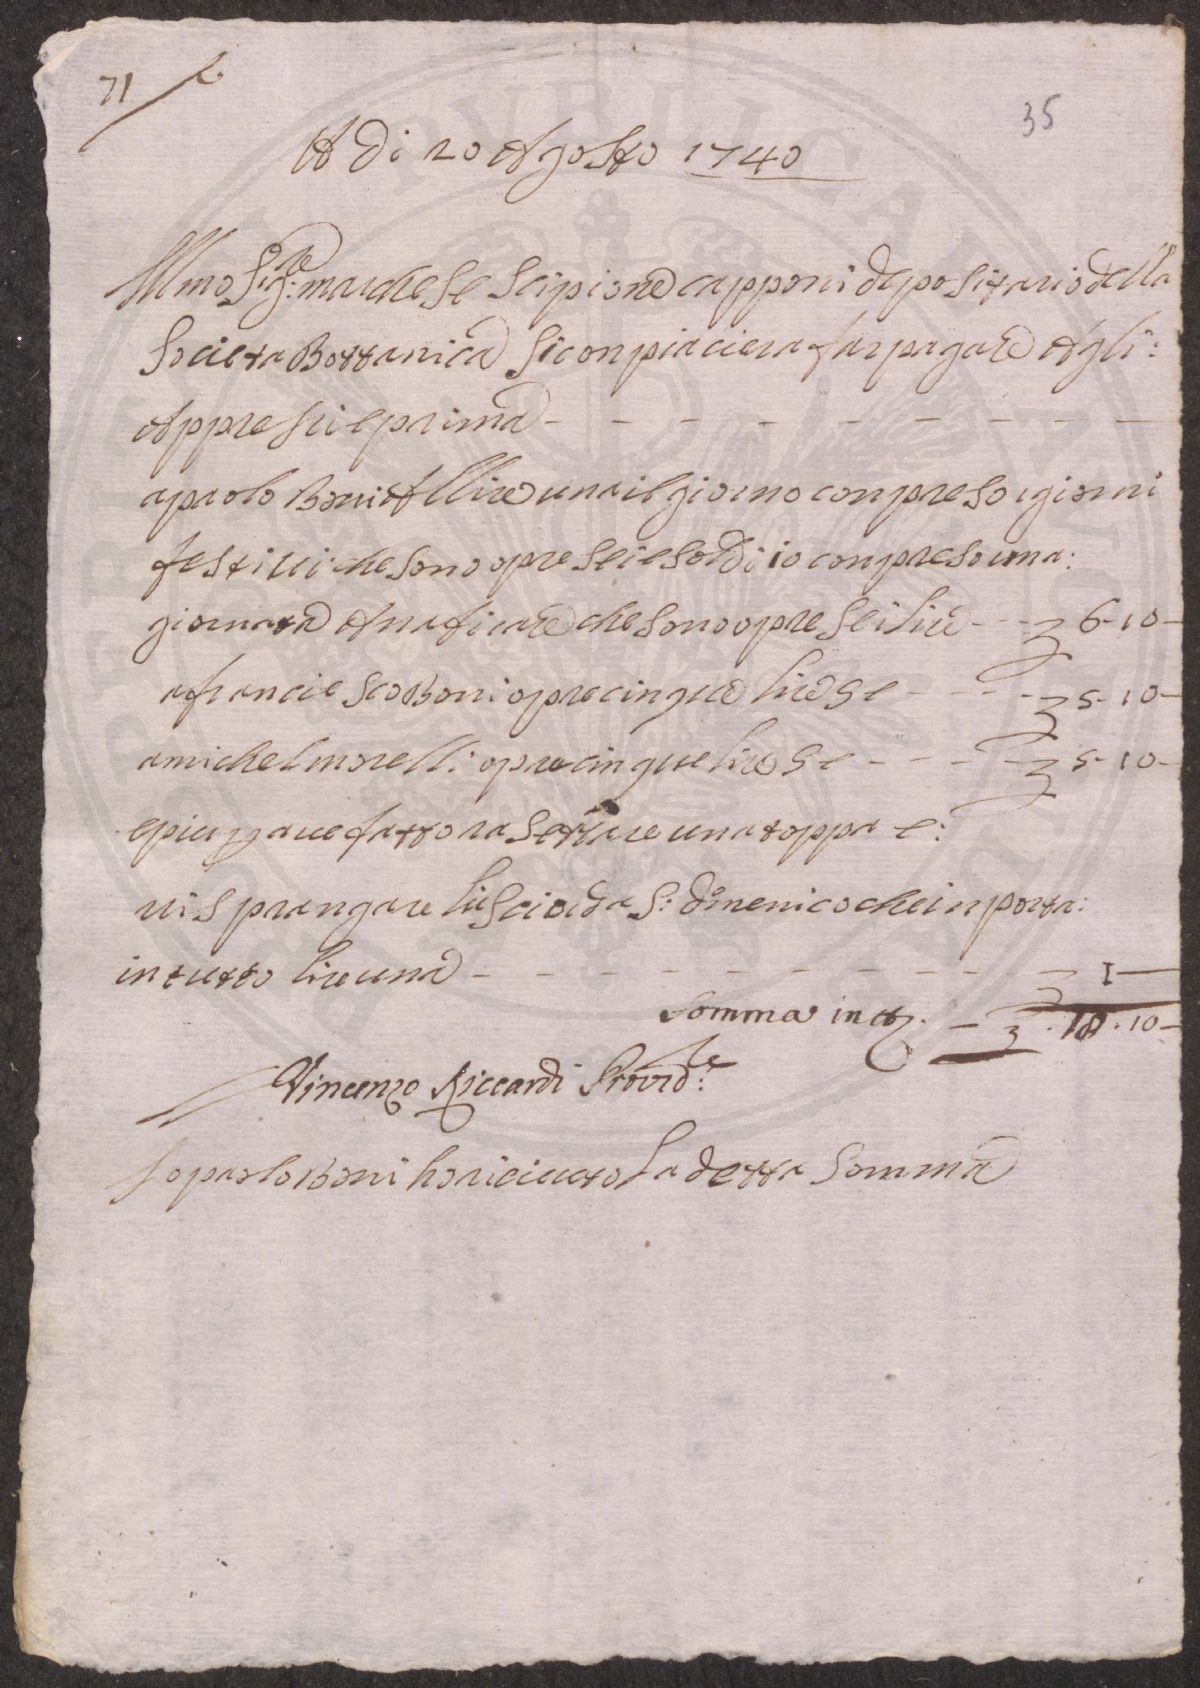 71
35
A di 20 Agosto 1740
Illmo Sig:re marchese Scipione capponi depositario della
Societa Bottanica Si conpiaciera far pagare Agli:
Appresu e prima
a paolo Boni A llire una il giorno conpreso i giorni
festiui che sono opre sei e soldi 10 conpreso una:
giornata Anaficare che sono opre sei lire 6-10-
a francie sco Boni opre cinque lire 5-10-
a michel morelli opre cinque lire 5-10-
e piu auer fatto ra settare una toppa e:
ui sprangare luscio da S: domenico che inporta:
in tutto lire una 1-
Somma in tto 18.10-
Vincenzo Riccardi Provid:re
Io paolo Boni ho riceiuuto La detta Somma